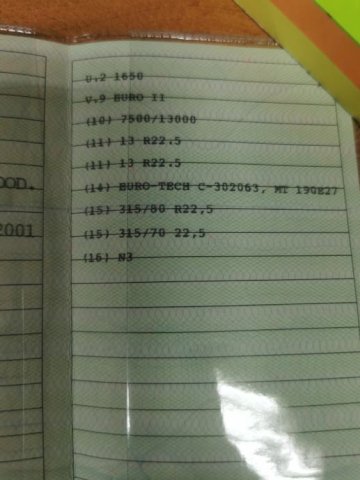 U.2 1650
V.9 EURO II
(10) 7500/13000
(11) 13 R22.5
(11) 13 R22.5
OOD.
(14) EURO-TECH C-302063, MT 190E27
(15) 315/80 R22,5
2001
(15) 315/70 22,5
(16) N3